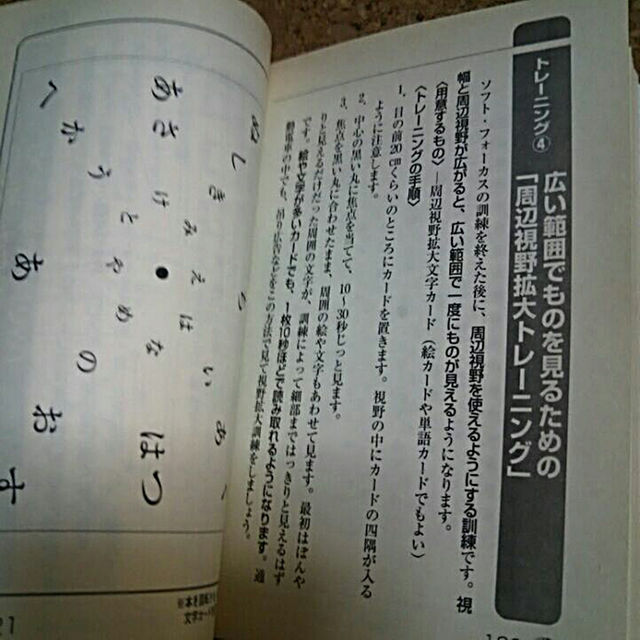 トレーニング④
広い範囲でものを見るための
「周辺視野拡大トレーニング」
ソフト・フォーカスの訓練を終えた後に、周辺視野を使えるようにする訓練です。視
幅と周辺視野が広がると、広い範囲で一度にものが見えるようになります。
〈用意するもの〉—周辺視野拡大文字カード（絵カードや単語カードでもよい）
〈トレーニングの手順〉
1、目の前20cmくらいのところにカードを置きます。視野の中にカードの四隅が入る
ように注意します。
2、中心の黒い丸に焦点を当てて、10〜30秒じっと見ます。
3、焦点を黒い丸に合わせたまま、周囲の絵や文字もあわせて見ます。最初はぼんや
りと見えるだけだった周囲の文字が、訓練によって細部まではっきりと見えるはず
です。絵や文字が多いカードでも、1枚10秒ほどで読み取れるようになります。通
勤電車の中でも、吊り広告などをこの方法で見て視野拡大訓練をしましょう。
い
お
え
は
な
の
お
み
や
め
あ
はつ
す
き
け
と
し
う
あさ
か
へ
21